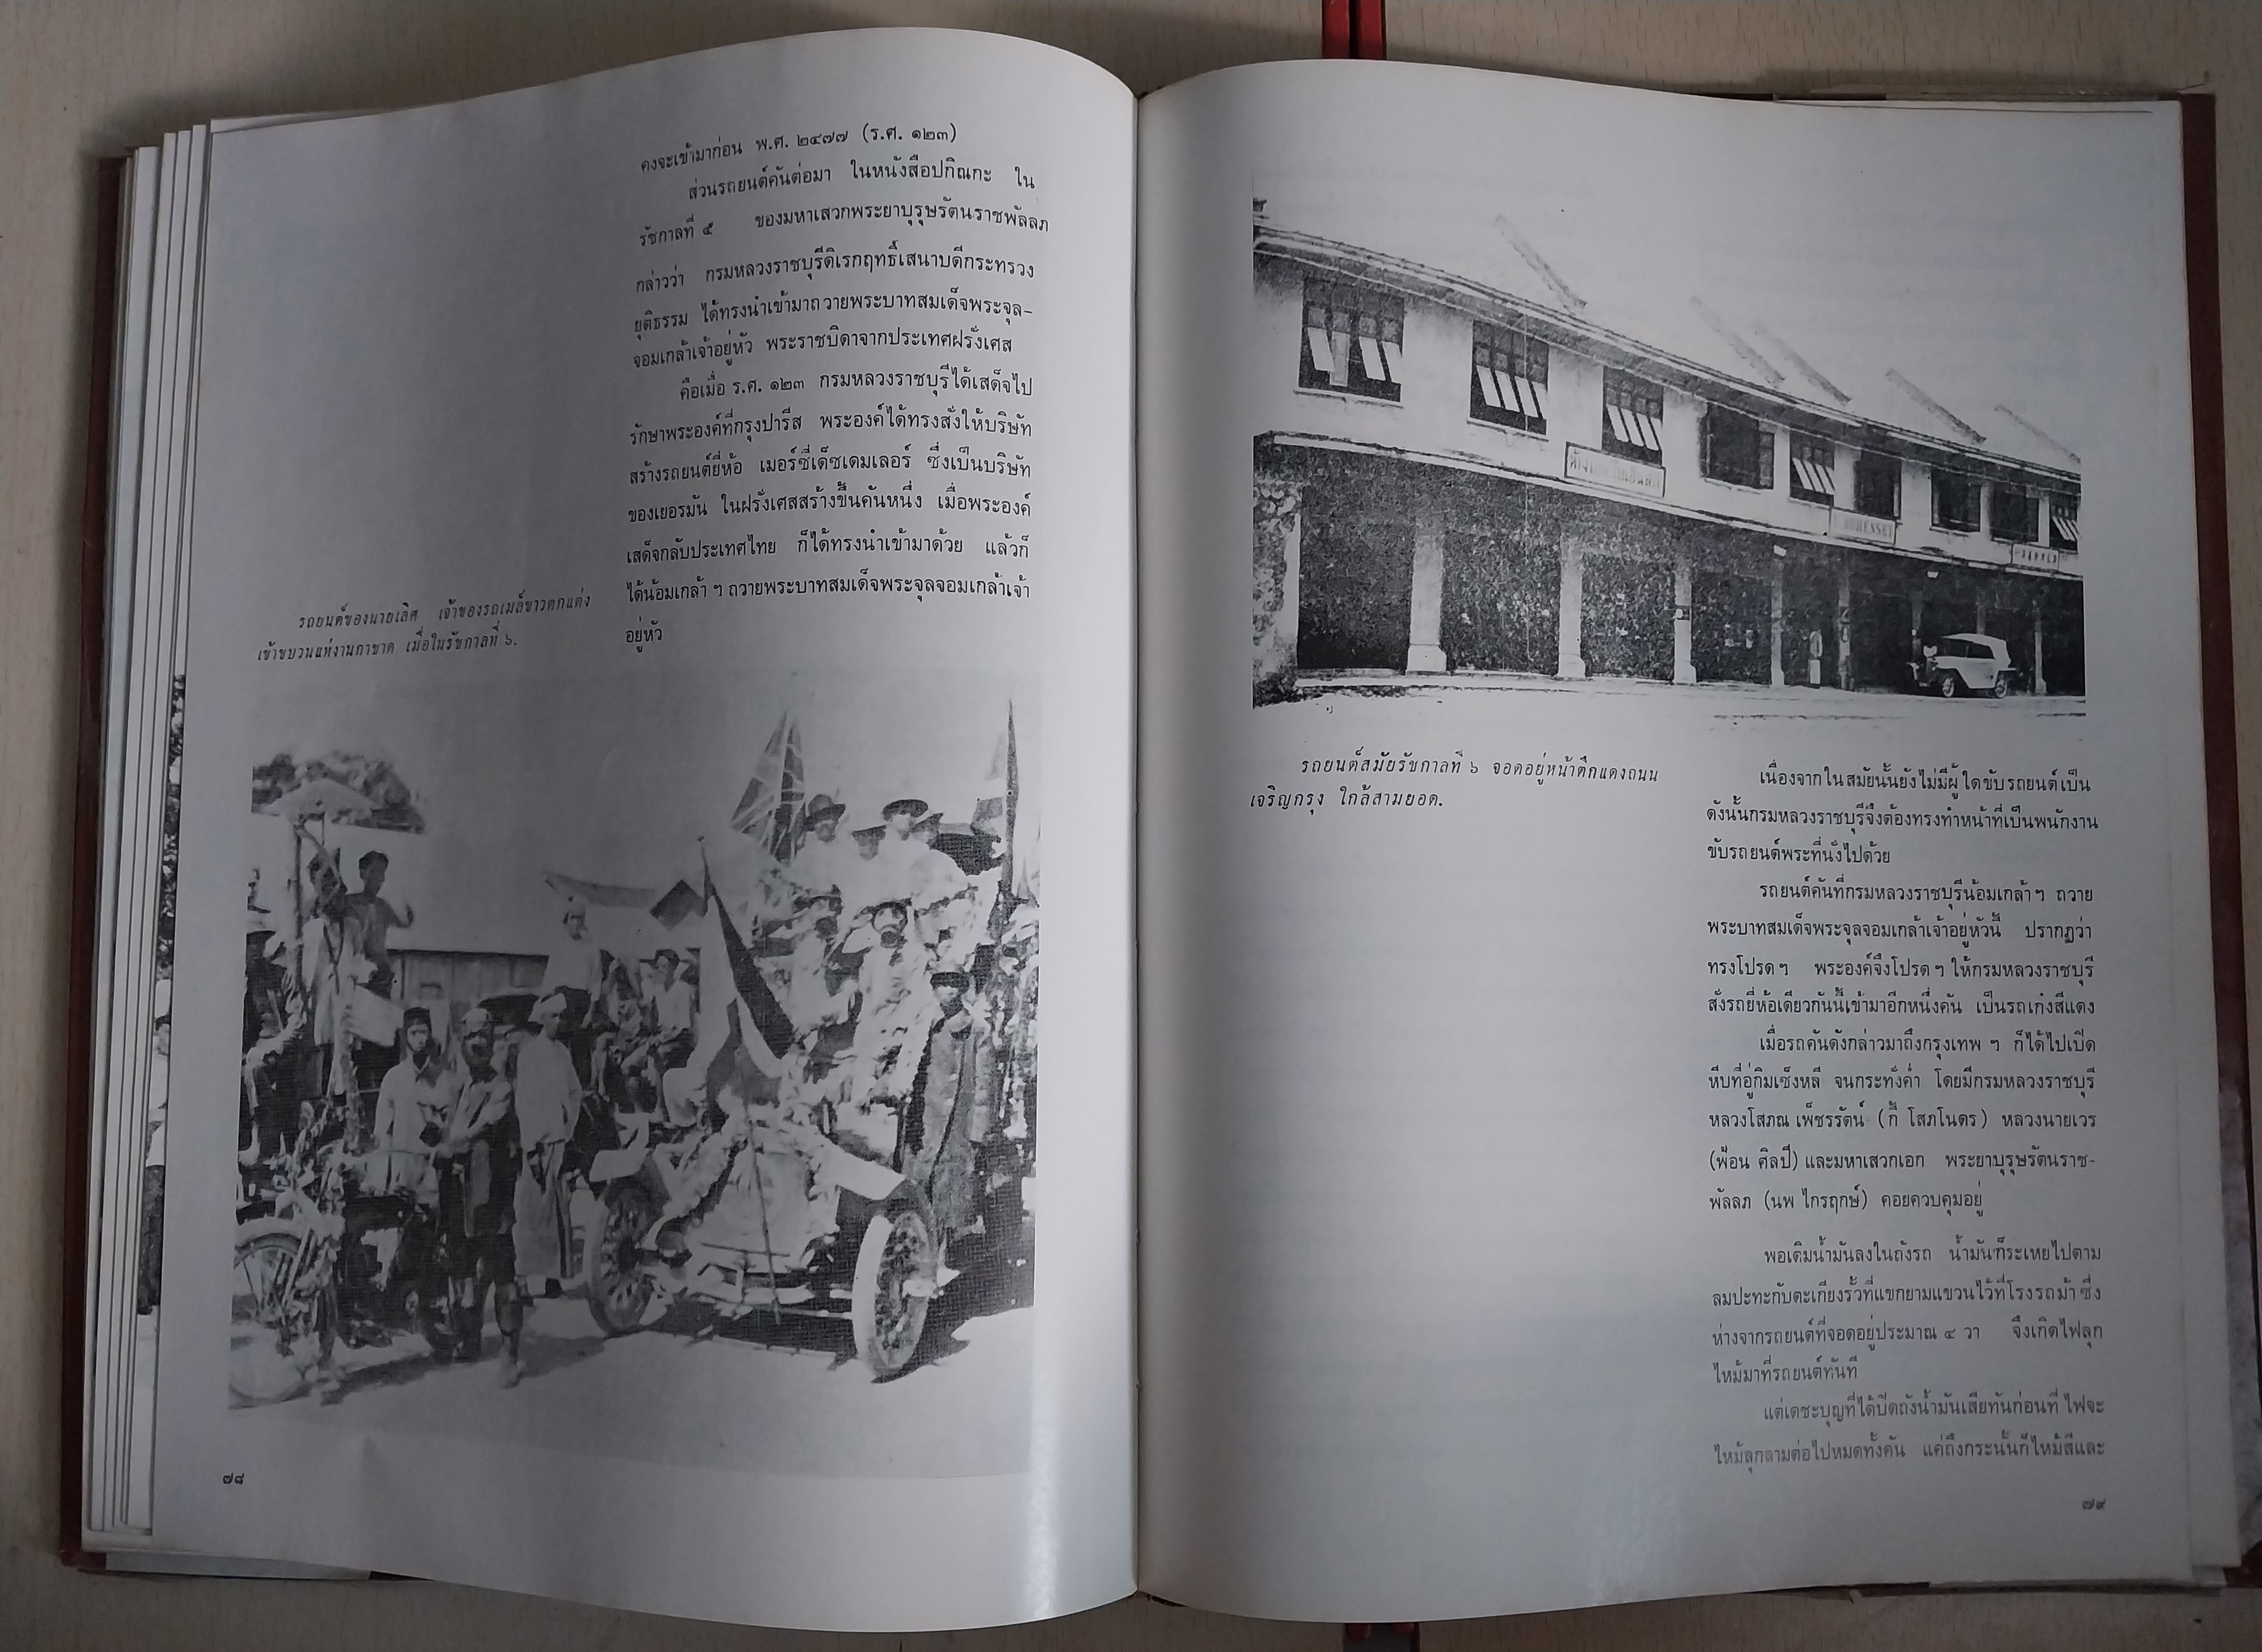 คงจะเข้ามาก่อน พ.ศ. ๒๔๗๗ (ร.ศ. ๑๒๓)
ส่วนรถยนต์คันต่อมา ในหนังสือปกิณกะ ใน
รัชกาลที่ ๕ ของมหาเสวกพระยาบุรุษรัตนราชพัลลภ
กล่าวว่า กรมหลวงราชบุรีดิเรกฤทธิ์เสนาบดีกระทรวง
ยุติธรรม ได้ทรงนำเข้ามาถวายพระบาทสมเด็จพระจุล-
จอมเกล้าเจ้าอยู่หัว พระราชบิดาจากประเทศฝรั่งเศส
คือเมื่อ ร.ศ. ๑๒๓ กรมหลวงราชบุรีได้เสด็จไป
รักษาพระองค์ที่กรุงปารีส พระองค์ได้ทรงสั่งให้บริษัท
สร้างรถยนต์ยี่ห้อ เมอร์ซี่เด็ซเดมเลอร์ ซึ่งเป็นบริษัท
ของเยอรมัน ในฝรั่งเศสสร้างขึ้นคันหนึ่ง เมื่อพระองค์
เสด็จกลับประเทศไทย ก็ได้ทรงนำเข้ามาด้วย แล้วก็
ได้น้อมเกล้า ฯ ถวายพระบาทสมเด็จพระจุลจอมเกล้าเจ้า
อยู่หัว
รถยนต์ของนายเลิศ เจ้าของรถเมล์ขาวตกแต่ง
เข้าขบวนแห่งานกาชาด เมื่อในรัชกาลที่ ๖.
๗๘
รถยนต์สมัยรัชกาลที่ ๖ จอดอยู่หน้าตึกแดงถนน
เจริญกรุง ใกล้สามยอด.
เนื่องจากในสมัยนั้นยังไม่มีผู้ใดขับรถยนต์เป็น
ดังนั้นกรมหลวงราชบุรีจึงต้องทรงทำหน้าที่เป็นพนักงาน
ขับรถยนต์พระที่นั่งไปด้วย
รถยนต์คันที่กรมหลวงราชบุรีน้อมเกล้าฯ ถวาย
พระบาทสมเด็จพระจุลจอมเกล้าเจ้าอยู่หัวนี้ ปรากฏว่า
ทรงโปรดฯ พระองค์จึงโปรดฯ ให้กรมหลวงราชบุรี
สั่งรถยี่ห้อเดียวกันนี้เข้ามาอีกหนึ่งคัน เป็นรถเก๋งสีแดง
เมื่อรถคันดังกล่าวมาถึงกรุงเทพ ฯ ก็ได้ไปเปิด
หีบที่อู่กิมเซ็งหลี จนกระทั่งค่ำ โดยมีกรมหลวงราชบุรี
หลวงโสภณ เพ็ชรรัตน์ (กี้ โสภโนดร) หลวงนายเวร
(พ้อน ศิลปี) และมหาเสวกเอก พระยาบุรุษรัตนราช-
พัลลภ (นพ ไกรฤกษ์) คอยควบคุมอยู่
พอเติมน้ำมันลงในถังรถ น้ำมันก็ระเหยไปตาม
ลมปะทะกับตะเกียงรั้วที่แขกยามแขวนไว้ที่โรงรถม้า ซึ่ง
ห่างจากรถยนต์ที่จอดอยู่ประมาณ ๔ วา จึงเกิดไฟลุก
ไหม้มาที่รถยนต์ทันที
แต่เดชะบุญที่ได้ปิดถังน้ำมันเสียทันก่อนที่ ไฟจะ
ไหม้ลุกลามต่อไปหมดทั้งคัน แค่ถึงกระนั้นก็ไหม้สีและ
๗๙